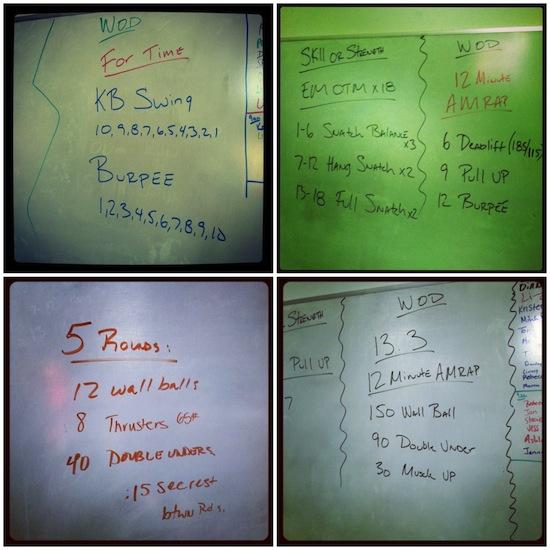 WOD
For Time
KB Swing
10,9,8,7,6,5,4,3,2,1
Burpee
1,2,3,4,5,6,7,8,9,10
Skill or Strength
EMOTM x18
1-6 Snatch Balance x3
7-12 Hang Snatch x2
13-18 Full Snatch x2
WOD
12 Minute
AMRAP
6 Deadlift (185/115)
9 Pull UP
12 Burpee
5 Rounds:
12 wall balls
8 Thrusters 65#
40 Double unders
:15 sec rest
btwn Rds.
Strength
Pull UP
7
WOD
13.3
12 Minute AMRAP
150 Wall Ball
90 Double Under
30 Muscle UP